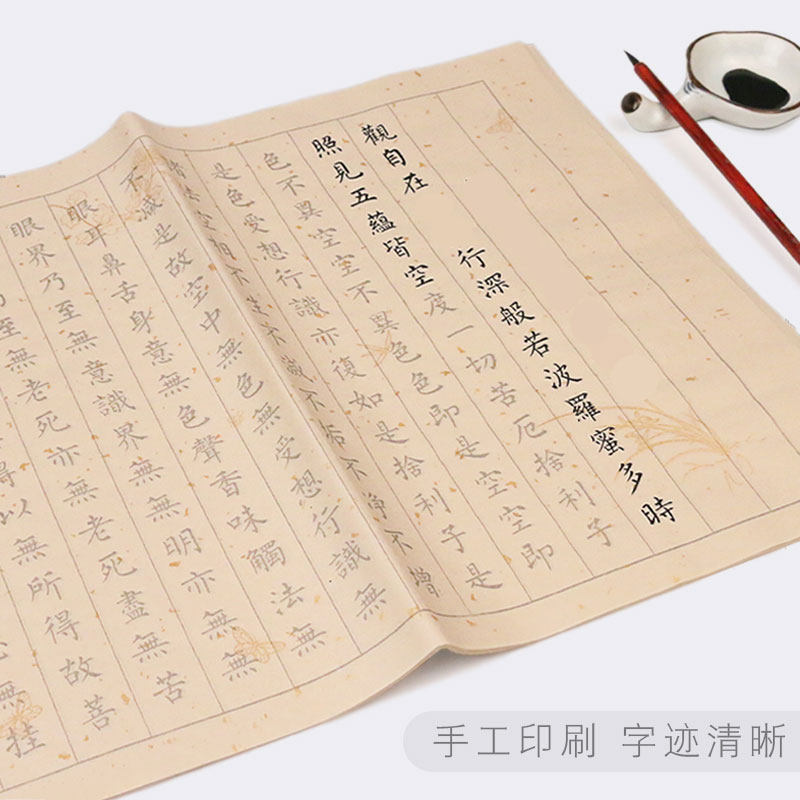 觀自在 行深般若波羅蜜多時
照見五蘊皆空度一切苦厄捨利子
色不異空空不異色色即是空空即
是色受想行識亦復如是捨利子是
空相不生不滅不垢不淨不增
不減是故空中無色無受想行識無
眼耳鼻舌身意無色聲香味觸法無
眼界乃至無意識界無無明亦無無
乃至無老死亦無老死盡無苦
得以無所得故菩
無挂
手工印刷 字迹清晰